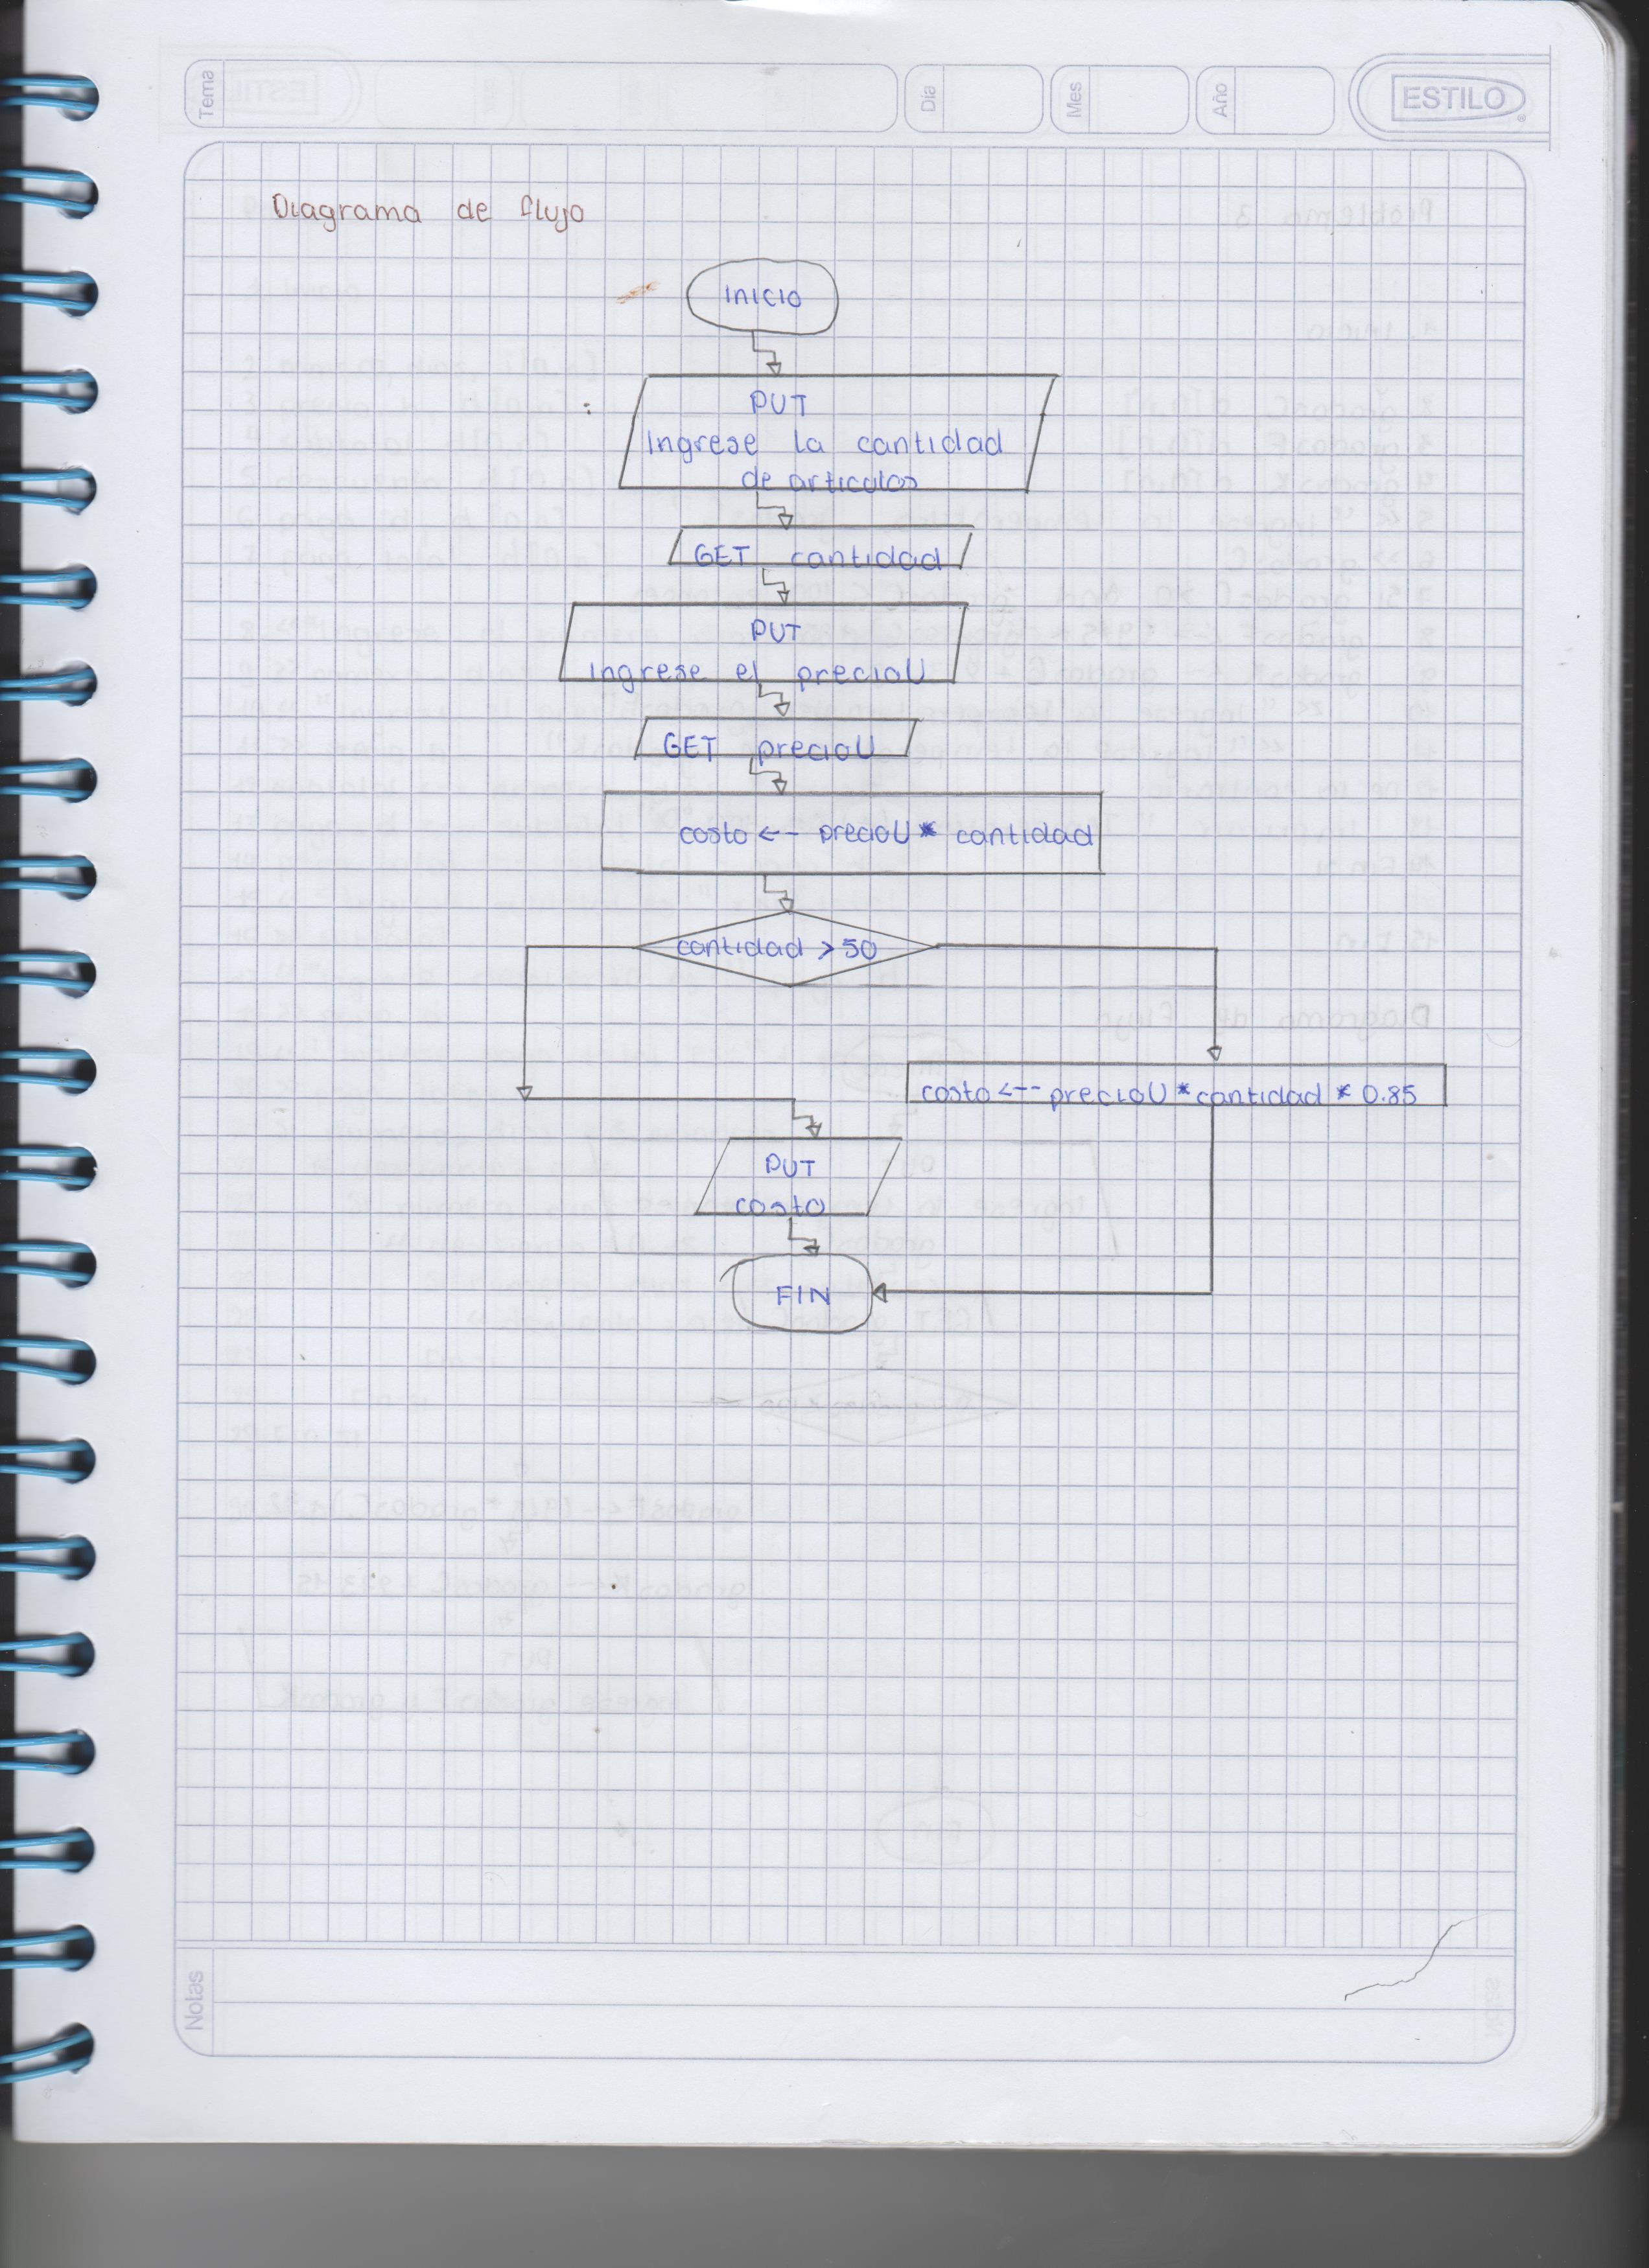 Tema
Día
Mes
Año
ESTILO
Diagrama de flujo
Inicio
PUT
Ingrese la cantidad
de articulos
GET cantidad
PUT
Ingrese el precioU
GET precioU
costo <-- precioU * cantidad
cantidad > 50
costo <-- precioU * cantidad * 0.85
PUT
costo
FIN
Notas